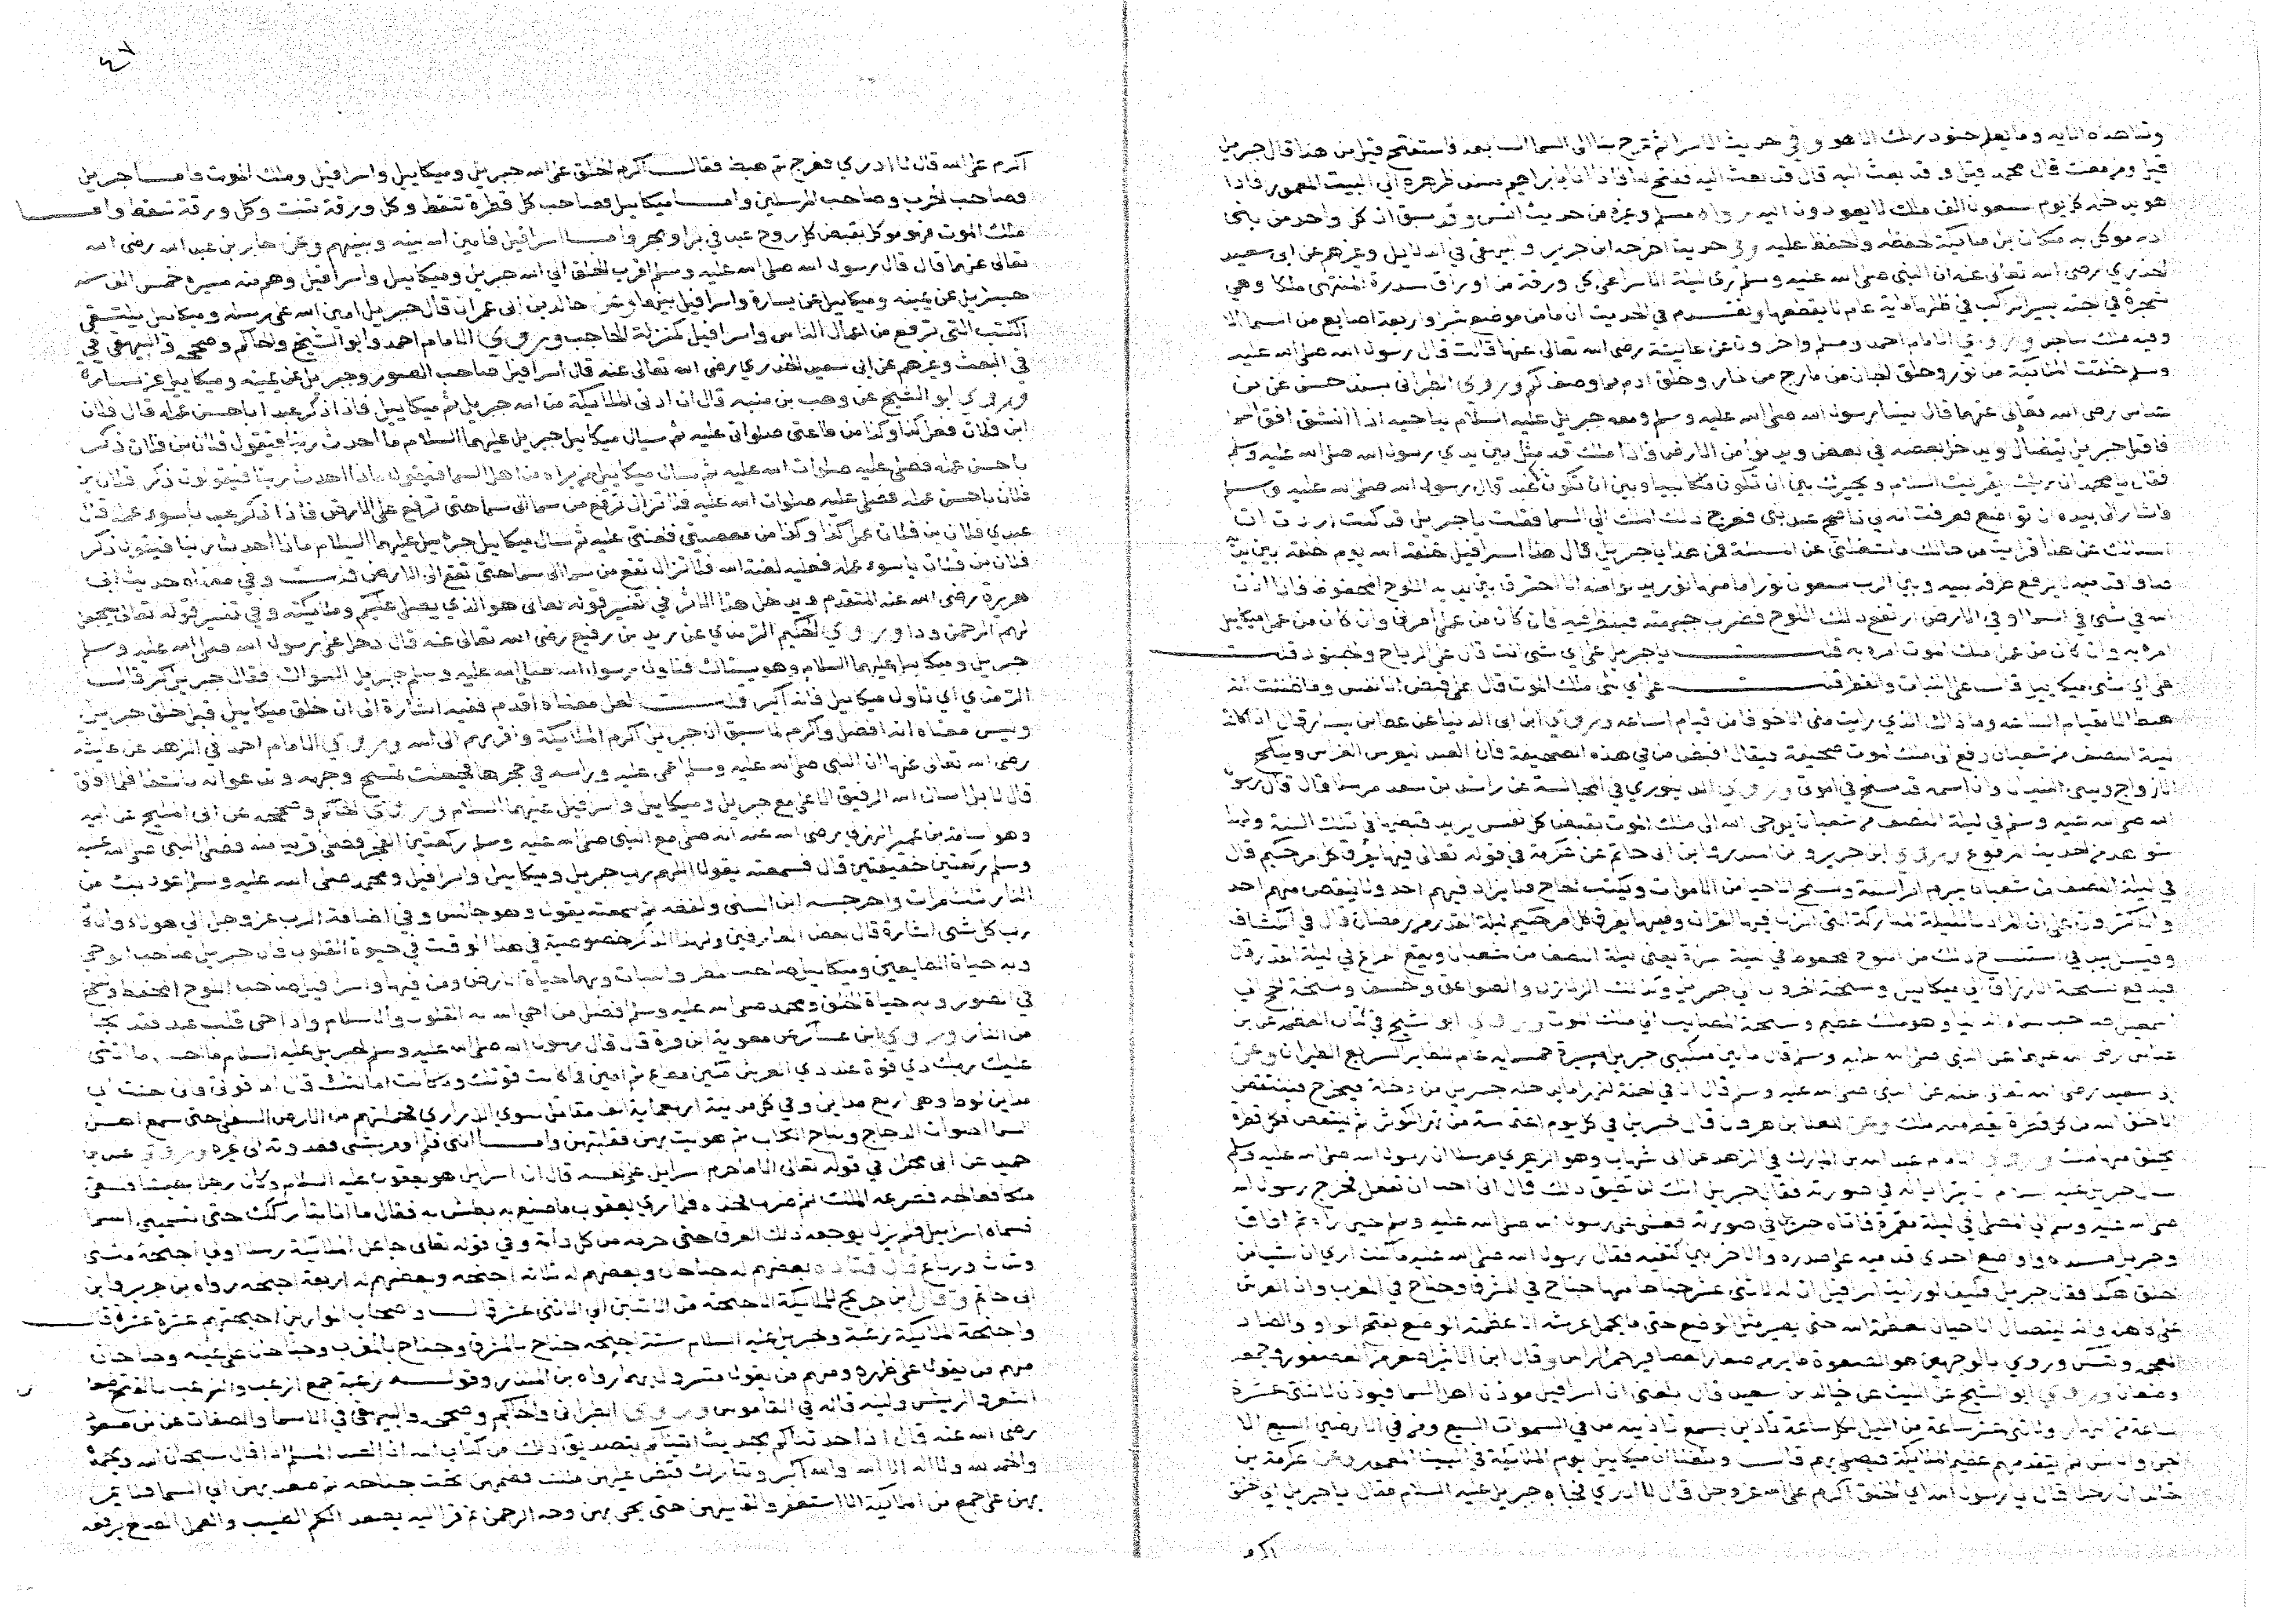 وشاهده الايه وما يعلم جنود ربك الا هو وفي حديث الاسرا ثم عرج بنا الى السما السابعه فاستفتح قيل من هذا قال جبريل
قيل ومن معك قال محمد قيل وقد بعث اليه قال قد بعث اليه ففتح لنا فاذا انا بابراهيم مسند ظهره الى البيت المعمور فاذا
هو يدخله كل يوم سبعون الف ملك لا يعودون اليه رواه مسلم وغيره من حديث انس وقد سبق ان كل واحد من بني
ادم موكل به ملكان من ملائكة حفظه وفي حديث اخرجه ابن جرير والبيهقي في الدلايل وغيرهم عن ابي سعيد
الخدري رضى الله تعالى عنه ان النبي صلى الله عليه وسلم راى ليلة الاسرا على كل ورقة من اوراق سدرة المنتهى ملكا وهي
شجرة في الجنة يسير الراكب في ظلها ماية عام لا يقطعها وتقدم في الحديث ان ما من موضع شبر او اربعة اصابع من السما الا
وفيه ملك ساجد وروي الامام احمد ومسلم واخرون عن عايشة رضى الله تعالى عنها قالت قال رسول الله صلى الله عليه
وسلم خلقت الملائكة من نور وخلق الجان من مارج من نار وخلق ادم مما وصف لكم وروي الطبراني بسند حسن عن ابن
عباس رضى الله تعالى عنهما قال بينا رسول الله صلى الله عليه وسلم ومعه جبريل عليه السلام يناجيه اذ انشق افق السما
فاقبل جبريل يتضال ويدخل بعضه في بعض ويدنو من الارض فاذا ملك قد مثل بين يدي رسول الله صلى الله عليه وسلم
فقال يا محمد ان ربك يقريك السلام ويخيرك بين ان تكون ملكا نبيا وبين ان تكون نبيا عبد قال رسول الله صلى الله عليه وسلم
واشار الى بيده ان تواضع فعرفت انه لي ناصح عبد نبي فعرج ذلك الملك الى السما فقلت يا جبريل قد كنت اردت ان
اسالك عن هذا فرايت من حالك ما شغلني عن المسئلة فمن هذا يا جبريل قال هذا اسرافيل خلقه الله يوم خلقه بين يديه
صافا قدميه لا يرفع طرفه بينه وبين الرب سبعون نورا ما منها نور يدنو منه الا احترق بين يديه اللوح المحفوظ فاذا اذن
الله في شي في السما او في الارض ارتفع ذلك اللوح فضرب جبهته فينظر فيه فان كان من عملي امرني وان كان من عمل ميكاييل
امره به وان كان من عمل ملك الموت امره به قلت يا جبريل على اي شي انت قال على الرياح والجنود قلت
على اي شي ميكاييل قال على النبات والقطر قلت على اي شي ملك الموت قال على قبض الانفس وما ظننت انه
هبط الا بقيام الساعه وما ذاك الذي رايت مني الا خوفا من قيام الساعه وروي ابن ابي الدنيا عن عطا بن يسار قال اذا كان
ليلة النصف من شعبان رفع الى ملك الموت صحيفة فيقال اقبض من في هذه الصحيفة فان العبد ليغرس الغراس وينكح
الازواج ويبني البنيان وان اسمه قد نسخ في الموتى وروي الدينوري في المجالسة عن راشد بن سعد مرسلا قال قال رسول
الله صلى الله عليه وسلم في ليلة النصف من شعبان يوحى الله الى ملك الموت بقبض كل نفس يريد قبضها في تلك السنة
وروي ابن جرير وابن المنذر وابن ابي حاتم عن عكرمة في قوله تعالى فيها يفرق كل امر حكيم قال
في ليلة النصف من شعبان يبرم امر السنة وينسخ الاحيا من الاموات ويكتب الحاج فلا يزاد فيهم احد ولا ينقص منهم احد
والاكثرون على ان المراد بالليلة المباركة التي انزل فيها القران وفيها يفرق كل امر حكيم ليلة القدر من رمضان قال في الكشاف
وقيل يبدا في استنساخ ذلك من اللوح المحفوظ في ليلة البراة يعني ليلة النصف من شعبان ويقع الفراغ في ليلة القدر قال
فتدفع نسخة الارزاق الى ميكاييل ونسخة الحروب الى جبريل وكذلك الزلازل والصواعق والخسف ونسخة الاعمال الى
اسمعيل صاحب سماء الدنيا وهو ملك عظيم ونسخة المصايب الى ملك الموت وروي ابو الشيخ في كتاب العظمة عن ابن
عباس رضى الله عنهما عن النبي صلى الله عليه وسلم قال ما بين منكبي جبريل مسيرة خمسماية عام للطاير السريع الطيران وعن
ابي سعيد رضى الله تعالى عنه عن النبي صلى الله عليه وسلم قال ان في الجنة لنهرا ما يدخله جبريل من دخلة فيخرج فينتفض
الا خلق الله من كل قطرة تقطر منه ملك وعن العلا بن هرون قال لجبريل في كل يوم اغتماسة من نهر الكوثر ثم ينتفض فكل قطرة
يخلق منها ملك وروي الامام عبد الله بن المبارك في الزهد عن ابن شهاب وهو الزهري مرسلا ان رسول الله صلى الله عليه وسلم
سال جبريل عليه السلام ان يتراءى له في صورته فقال جبريل انك لن تطيق ذلك قال اني احب ان تفعل فخرج رسول الله
صلى الله عليه وسلم الى المصلى في ليلة مقمرة فاتاه جبريل في صورته فغشي على رسول الله صلى الله عليه وسلم حين راه ثم افاق
وجبريل مسنده وواضع احدى يديه على صدره والاخر بين كتفيه فقال رسول الله صلى الله عليه ما كنت ارى ان شيا من
الخلق هكذا فقال جبريل فكيف لو رايت اسرافيل ان له لاثني عشر جناحا منها جناح في المشرق وجناح في المغرب وان العرش
على كاهله وانه ليتضال الاحيان لعظمة الله حتى يصير مثل الوضع حتى ما يحمل عرشه الا عظمته الوضع بفتح الواو والصاد
وروي ابو الشيخ عن الليث عن خالد بن سعيد قال بلغنا ان اسرافيل موذن اهل السما فيوذن لاثنتي عشرة
ساعة من النهار ولاثنتي عشر ساعة من الليل لكل ساعة تاذين يسمع تاذينه من في السموات السبع ومن في الارضين السبع الا
الجن والانس ثم يتقدم بهم عظيم الملائكة فيصلي بهم قال وبلغنا ان ميكاييل يوم الملائكة في البيت المعمور وعن عكرمة بن
خالد ان رجلا قال يا رسول الله اي الخلق اكرم على الله عز وجل قال لا ادري فجاه جبريل عليه السلام فقال يا جبريل اي الخلق
اكرم
٤٧
اكرم على الله قال لا ادري فعرج ثم هبط فقال اكرم الخلق على الله جبريل وميكاييل واسرافيل وملك الموت فاما جبريل
فصاحب الحرب وصاحب المرسلين واما ميكاييل فصاحب كل قطرة تسقط وكل ورقة تنبت وكل ورقة تسقط واما
ملك الموت فهو موكل بقبض كل روح عبد في بر او بحر واما اسرافيل فامين الله بينه وبينهم وعن جابر بن عبد الله رضى الله
تعالى عنهما قال قال رسول الله صلى الله عليه وسلم اقرب الخلق الى الله جبريل وميكاييل واسرافيل وهم منه مسيرة خمسين الف سنه
جبريل عن يمينه وميكاييل عن يساره واسرافيل بينهما وعن خالد بن ابي عمران قال جبريل امين الله على رسله وميكاييل يتلقى
الكتب التي ترفع من اعمال الناس واسرافيل بمنزلة الحاجب وروي الامام احمد وابو الشيخ والحاكم وصححه والبيهقي
في البعث وغيرهم عن ابي سعيد الخدري رضى الله تعالى عنه قال اسرافيل صاحب الصور وجبريل عن يمينه وميكاييل عن يساره
وروي ابو الشيخ عن وهب بن منبه قال ان ادنى الملائكة من الله جبريل ثم ميكاييل فاذا ذكر عبدا باحسن عمله قال فلان
ابن فلان عمل كذا وكذا من طاعتي صلواتي عليه ثم سال ميكاييل جبريل عليهما السلام ما احدث ربنا فيقول فلان بن فلان ذكر
باحسن عمله فصلى عليه صلوات الله عليه ثم سال ميكاييل من يراه من اهل السما فيقول ماذا احدث ربنا فيقول ذكر فلان بن
فلان باحسن عمله فصلى عليه صلوات الله عليه فلا تزال تقع من سما الى سما حتى تقع على الارض فاذا ذكر عبد باسوء عمله قال
عبدي فلان بن فلان عمل كذا وكذا من معصيتي فلعنتي عليه ثم سال ميكاييل جبريل عليهما السلام ماذا احدث ربنا فيقول ذكر
فلان بن فلان باسوء عمله فعليه لعنة الله فلا تزال تقع من سما الى سما حتى تقع الى الارض قلت وفي معناه حديث ابي
هريرة رضى الله عنه المتقدم ويدخل هذا الاثر في تفسير قوله تعالى هو الذي يصلي عليكم وملائكته وفي تفسير قوله تعالى سيجعل
لهم الرحمن ودا وروي الحكيم الترمذي عن زيد بن رفيع رضى الله تعالى عنه قال دخل على رسول الله صلى الله عليه وسلم
جبريل وميكاييل عليهما السلام وهو يستاك فناول رسول الله صلى الله عليه وسلم جبريل السواك فقال جبريل كبر قال
الترمذي اي ناول ميكاييل فانه اكبر قلت لعل معناه اقدم ففيه اشارة الى ان خلق ميكاييل قبل خلق جبريل
وليس معناه انه افضل واكرم لما سبق ان جبريل اكرم الملائكة واقربهم الى الله وروي الامام احمد في الزهد عن عايشه
رضى الله تعالى عنها ان النبي صلى الله عليه وسلم اغمي عليه وراسه في حجرها فجعلت تمسح وجهه وتدعو له بالشفا فلما افاق
قال لا بل اسال الله الرفيق الاعلى مع جبريل وميكاييل واسرافيل عليهم السلام وروي الحاكم وصححه عن ابي المليح عن ابيه
وهو اسامة بن عمير الهذلي رضى الله عنه انه صلى مع النبي صلى الله عليه وسلم ركعتي الفجر فصلى قريبا منه فصلى النبي صلى الله عليه
وسلم ركعتين خفيفتين قال فسمعته يقول اللهم رب جبريل وميكاييل واسرافيل ومحمد صلى الله عليه وسلم اعوذ بك من
النار ثلث مرات واخرجه ابن السني ولفظه ثم سمعته يقول وهو جالس وفي اضافة الرب عز وجل الى هولاء وانه
رب كل شي اشارة قال بعض العارفين ولهذا الذكر خصوصية في هذا الوقت في حيوة القلوب فان جبريل صاحب الوحي
وبه حياة الطايعين وميكاييل صاحب القطر والنبات وبهما حياة الارض ومن فيها واسرافيل صاحب اللوح المحفوظ والنفخ
في الصور وبه حياة الخلق ومحمد صلى الله عليه وسلم افضل من احيى الله به القلوب والسلام واذا حيي قلب عبد فقد نجا
من النار وروي ابن عساكر عن معوية ابن قرة قال قال رسول الله صلى الله عليه وسلم لجبريل عليه السلام ما احسن ما اثنى
عليك ربك ذي قوة عند ذي العرش مكين مطاع ثم امين فما كانت قوتك وما كانت امانتك قال اما قوتي فاني بعثت الى
مداين لوط وهي اربع مداين وفي كل مدينة اربعماية الف مقاتل سوى الذراري فحملتهم من الارض السفلى حتى سمع اهل
السما اصوات الدجاج ونباح الكلاب ثم هويت بهن فقلبتهن واما امانتي فلم اومر بشي فعدوته الى غيره وروي عبد بن
حميد عن ابي مجلز في قوله تعالى الا ما حرم اسرايل على نفسه قال ان اسرايل هو يعقوب عليه السلام وكان رجلا بطيشا فلقي
ملكا فعالجه فصرعه الملك ثم ضرب فخذه فلما راى يعقوب ما صنع به بطش به فقال ما انا بتاركك حتى تسميني اسما
فسماه اسرايل فلم يزل يوجعه ذلك العرق حتى حرمه من كل دابة وفي قوله تعالى جاعل الملائكة رسلا اولي اجنحة مثنى
وثلاث ورباع قال قتادة بعضهم له جناحان وبعضهم له ثلاثة اجنحه وبعضهم له اربعة اجنحه رواه ابن جرير وابن
ابي حاتم وقال ابن جريج للملائكة الاجنحة من الاثنين الى الاثنى عشر قال واصحاب الموازين اجنحتهم عشرة عشرة قال
واجنحة الملائكة زغبة وجبريل عليه السلام ستة اجنحه جناح بالمشرق وجناح بالمغرب وجناحان على عينيه وجناحان
منهم من يقول على ظهره ومنهم من يقول متسرولا بهما رواه ابن المنذر وقوله زغبة جمع ازغب والزغب بالفتح صغار
الشعر والريش ولينه قاله في القاموس وروي الطبراني والحاكم وصححه والبيهقي في الاسما والصفات عن ابن مسعود
رضى الله عنه قال اذا حدثناكم بحديث اتيناكم بتصديق ذلك من كتاب الله ان العبد المسلم اذا قال سبحان الله وبحمده
والحمد لله ولا اله الا الله والله اكبر وتبارك الله قبض عليهن ملك فضمهن تحت جناحه ثم صعد بهن الى السما فلا يمر
بهن على جمع من الملائكة الا استغفروا لقايلهن حتى يجي بهن وجه الرحمن ثم قرا اليه يصعد الكلم الطيب والعمل الصالح يرفعه